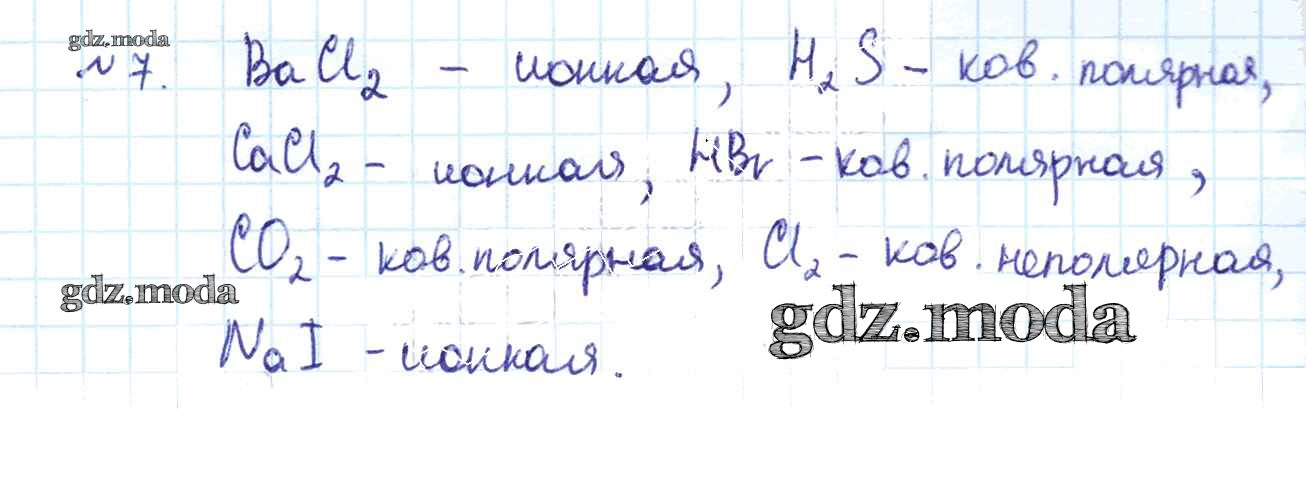 gdz.moda
№ 7. BaCl₂ – ионная, H₂S – ков. полярная,
CaCl₂ – ионная, HBr – ков. полярная,
CO₂ – ков. полярная, Cl₂ – ков. неполярная,
gdz.moda
gdz.moda
NaI – ионная.